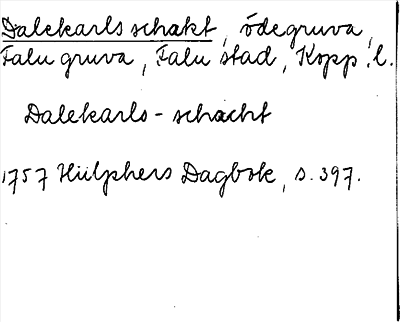 Dalekarls schakt, ödegruva,
Falu gruva, Falu stad, Kopp. l.
Dalekarls-schacht
1757 Hülphers Dagbok, s. 397.